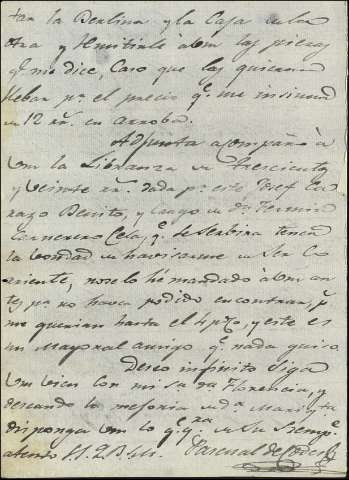 tan la Berlina y la Caja de la
otra y Remitirle à Vm las piezas
qe. me dice, Caso que las quieran
llebar pr. el precio qe. me insinua
de 12 rs. en arroba.
Adjunta acompaño à
Vm la Libranza de trescientos
y veinte rs. dada pr. este Josef
Benito, y cargo de Dn. Fermin
Carnerero qe. se serbira tener
la bondad de havisarme de ser Co
rriente, no se lo hé mandado à Vm an
tes pr. no haver podido encontrar,
me querian hasta el 4 pto., y este es
un Mayoral amigo qe. nada quiso.
Deseo infinito siga
Vm bien con mi Sa. Da. Florencia, y
deseando la mejoria de Da. Mariqta.
disponga Vm lo qe. de su Siempe.
atento S. Q. B. S. M. Pascual de